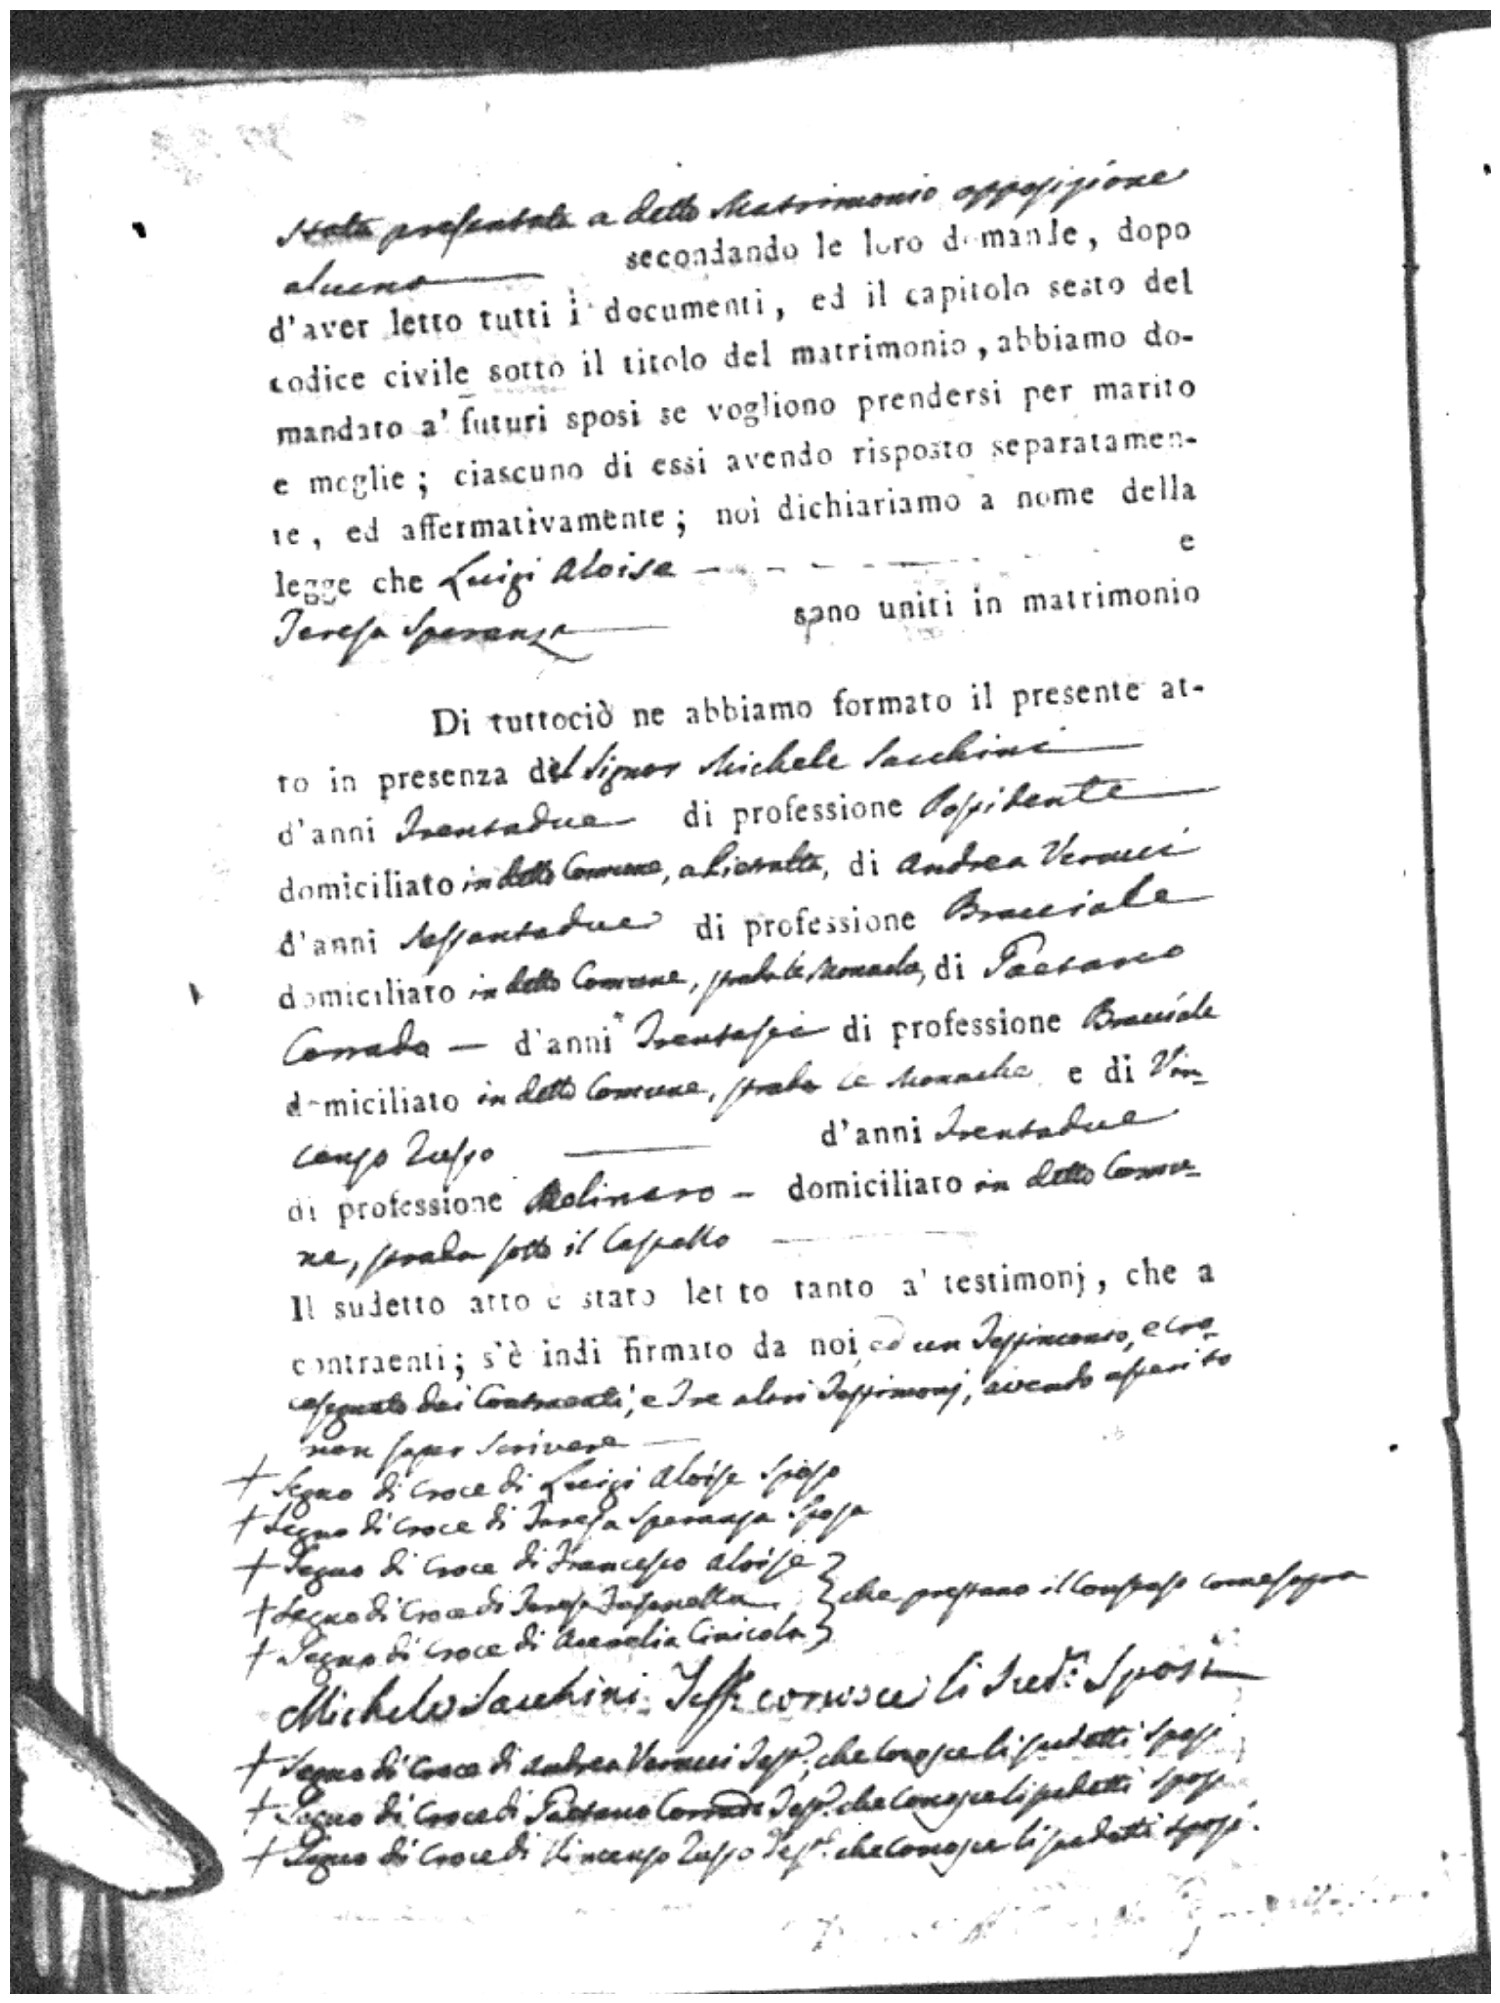 stata presentata a detto Matrimonio opposizione
alcuna secondando le loro domande, dopo
d'aver letto tutti i documenti, ed il capitolo sesto del
codice civile sotto il titolo del matrimonio, abbiamo do-
mandato a' futuri sposi se vogliono prendersi per marito
e moglie; ciascuno di essi avendo risposto separatamen-
te, ed affermativamente; noi dichiariamo a nome della
legge che Luigi Aloise e
Teresa Speranza sono uniti in matrimonio
Di tuttociò ne abbiamo formato il presente at-
to in presenza del Signor Michele Sacchini
d'anni Trentadue di professione Possidente
domiciliato in detto Comune, a di Andrea Veraucci
d'anni Sessantadue di professione Bracciale
domiciliato in detto Comune, strada le Monache, di Gaetano
Corrado — d'anni Trentasei di professione Bracciale
domiciliato in detto Comune, strada le Monache e di Vin-
cenzo Zuppo d'anni Trentadue
di professione Molinaro — domiciliato in detto Comu-
ne, strada sotto il Castello
Il sudetto atto è stato letto tanto a' testimonj, che a
contraenti; s'è indi firmato da noi, ed un Testimonio, e cro-
cesegnato dai Contraenti, e Tre altri Testimonj, avendo asserito
non saper scrivere
+ Segno di Croce di Luigi Aloise Sposo
+ Segno di Croce di Teresa Speranza Sposa
+ Segno di Croce di Francesco Aloise
+ Segno di Croce di Teresa Fasanella } che prestano il Consenso come sopra
+ Segno di Croce di Aurelia Cinicola
Michele Sacchini Teste conosce li sud.i Sposi
+ Segno di Croce di Andrea Veraucci Test.e, che conosce li sudetti Sposi
+ Segno di Croce di Gaetano Corrado Test.e che conosce li sudetti Sposi
+ Segno di Croce di Vincenzo Zuppo Test.e che conosce li sudetti Sposi.